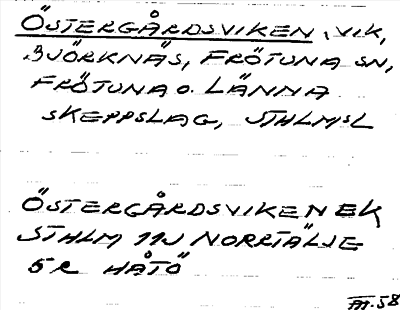 ÖSTERGÅRDSVIKEN, VIK,
BJÖRKNÄS, FRÖTUNA SN,
FRÖTUNA O. LÄNNA
SKEPPSLAG, STHLMSL
ÖSTERGÅRDSVIKEN EK
STHLM 11J NORRTÄLJE
5R HÅTÖ
58